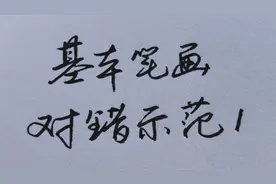 基本笔画
对错示范1